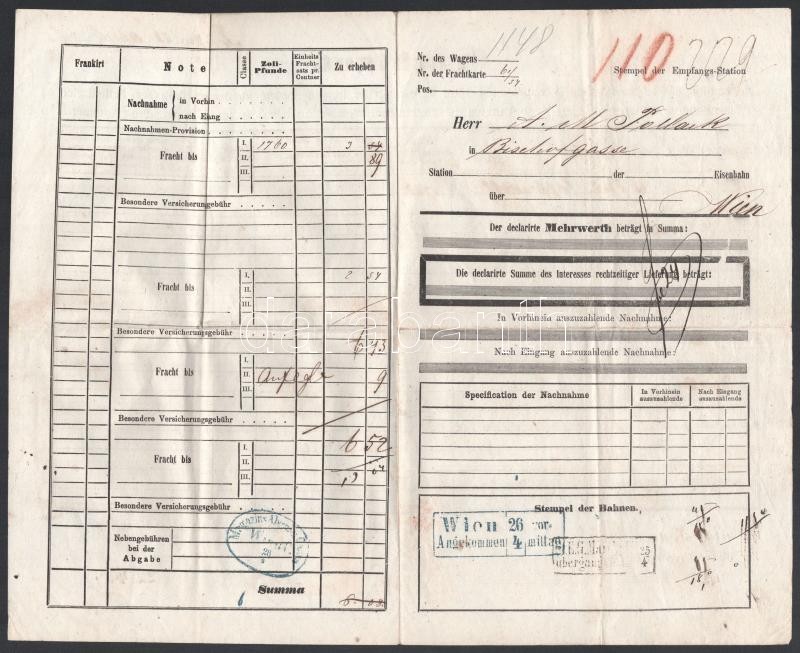 Frankirt
Note
Classe
Zoll-Pfunde
Einheits Frachtsatz pr. Centner
Zu erheben
Nachnahme { in Vorhin . . . . .
nach Eiang . . . . .
Nachnahmen-Provision . . . . .
Fracht bis
I. 1760 3
II. 89
III.
Besondere Versicherungsgebühr . . . . .
Fracht bis
I. 2 54
II.
III.
Besondere Versicherungsgebühr . . .
6 43
Fracht bis
I.
II. 9
III.
Besondere Versicherungsgebühr . . . . .
6 52
Fracht bis
I.
II.
III.
Besondere Versicherungsgebühr . . . . .
Nebengebühren bei der Abgabe
Wien
6
Summa
Nr. des Wagens 1148
Nr. der Frachtkarte
Pos.
110 229
Stempel der Empfangs-Station
Herr A. M. Pollack
in Bischofgasse
Station der Eisenbahn
über Wien
Der declarirte Mehrwerth beträgt in Summa:
Die declarirte Summe des Interesses rechtzeitiger Lieferung beträgt:
In Vorhinein auszuzahlende Nachnahme:
Nach Eingang auszuzahlende Nachnahme:
darabanth
Specification der Nachnahme
In Vorhinein auszuzahlende
Nach Eingang auszuzahlende
Stempel der Bahnen.
Wien 26 vor-
Angekommen 4 mittag
25
übergang 4